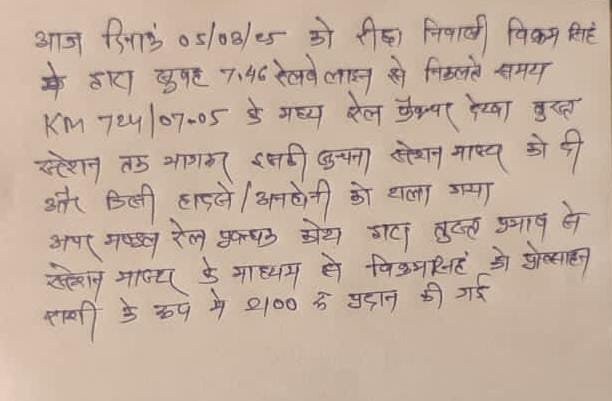 आज दिनांक 05/08/25 को रीछा निवासी विक्रम सिंह
के द्वारा सुबह 7.46 रेलवे लाइन से निकलते समय
KM 724/07-05 के मध्य रेल फ्रेक्चर देखा तुरन्त
स्टेशन तक भागकर इसकी सूचना स्टेशन मास्टर को दी
और किसी हादसे/अनहोनी को टाला गया
अपर मण्डल रेल प्रबन्धक कोटा द्वारा तुरन्त प्रभाव से
स्टेशन मास्टर के माध्यम से विक्रमसिंह को प्रोत्साहन
राशी के रूप मे 2100 रू प्रदान की गई